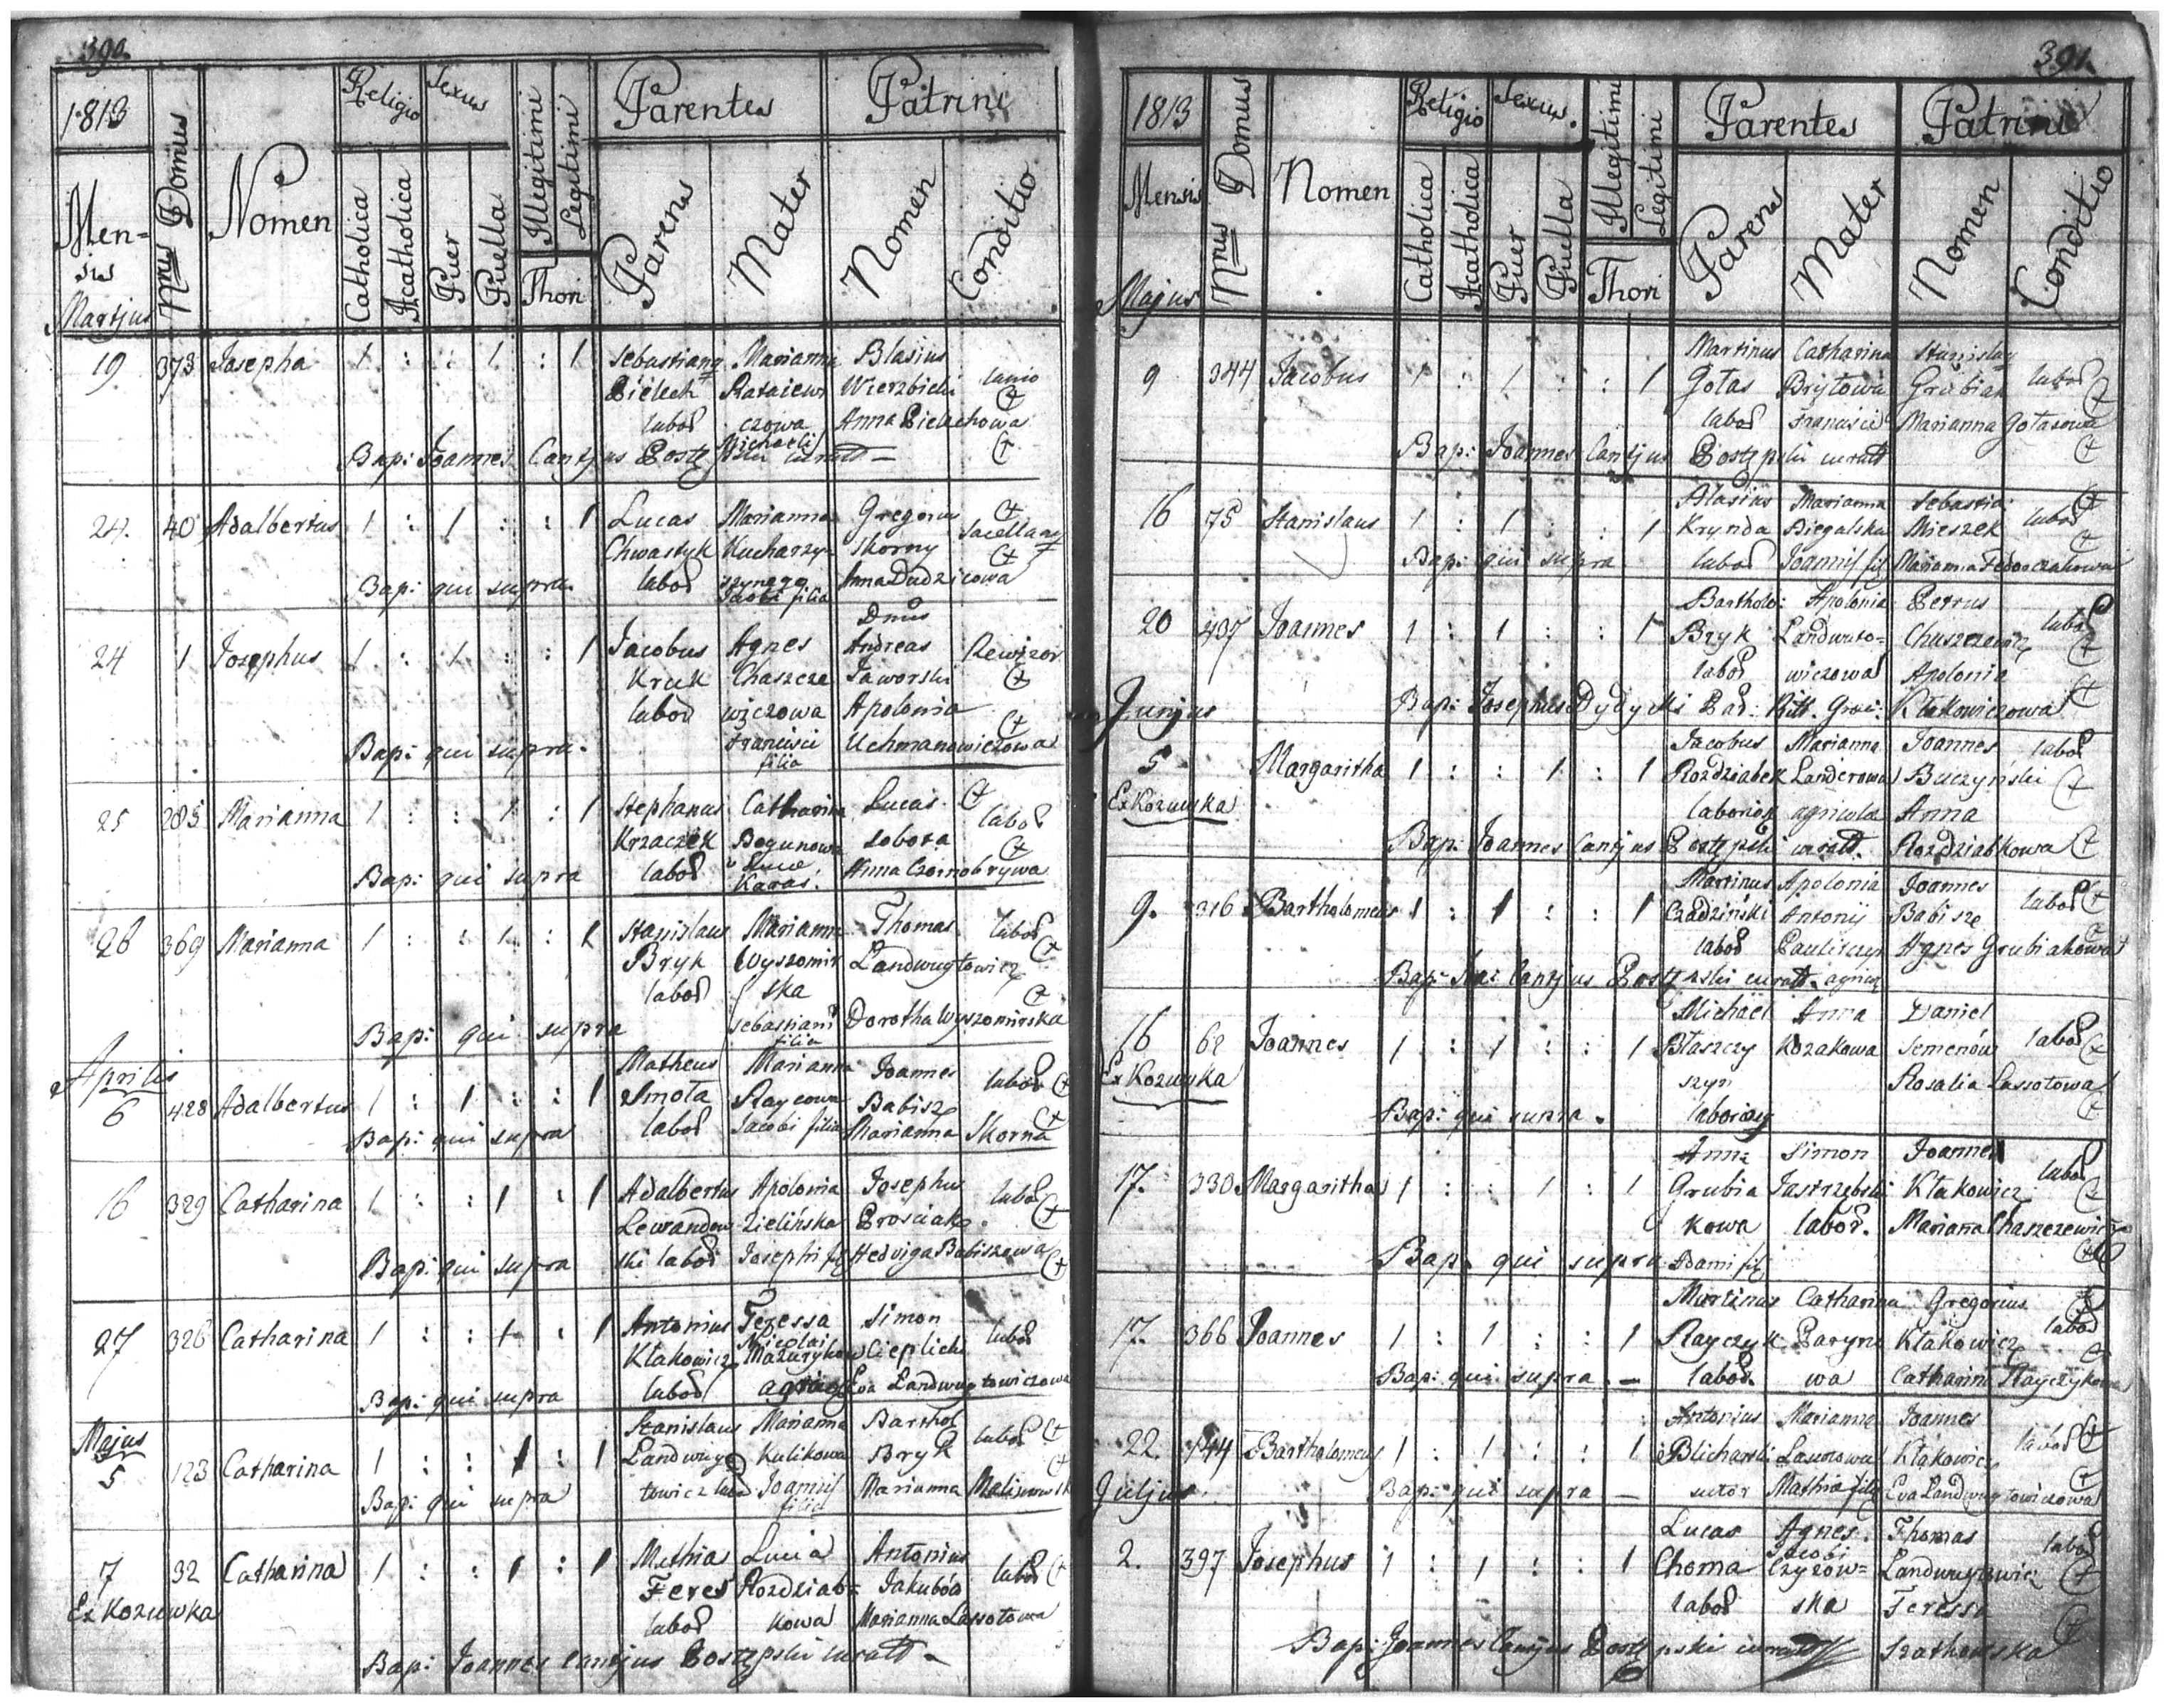 390.
1813
Religio Sexus
Illegitimi
Legitimi
Parentes Patrini
Mensis
Martjus
Nrus Domus
Nomen
Catholica
Acatholica
Puer
Puella
Thori
Parens
Mater
Nomen
Conditio
19 373 Josepha 1 : : 1 : 1 Sebastiang Marianna Blasius
Bielech Rataiew Wierzbicki lanio
labor czowa Anna Bielechowa
Michaeli
Bap: Joannes Cantjus Postępski curatt
24. 40 Adalbertus 1 : 1 : : 1 Lucas Marianna Gregorius
Sacellang
Chwastyk Kucharzy Skorny
labor Anna Dudzicowa
Jacobi filia
Bap: qui supra
Dnus
24 1 Josephus 1 : 1 : : 1 Jacobus Agnes Andreas Rewizor
Kruk Chaszcze Jaworski
labor wiczowa Apolonia
Francisci Uchmanowiczowa
filia
Bap: qui supra.
25 285 Marianna 1 : : 1 : 1 Stephanus Catharina Lucas
labor
Krzaczek Bogunowa Sobota
labor Karas Anna Czornobrywa
Bap: qui supra
26 369 Marianna 1 : : 1 : 1 Stanislaus Marianna Thomas labor
Bryk Wyszomir Landwuytowicz
labor ska
Sebastiani Dorotha Wyszomirska
filia
Bap: qui supra
Aprilis
6 428 Adalbertus 1 : 1 : : 1 Matheus Marianna Joannes labor
Smoła Raycowa Babisz
labor Jacobi filia Marianna Skorna
Bap: qui supra
16 329 Catharina 1 : : 1 : 1 Adalbertus Apolonia Josephus labor
Lewandow Zielińska Prościak
ski labor Josephi fil Hedviga Babiszowa
Bap: qui supra
27 326 Catharina 1 : : 1 : 1 Antonius Teressa Simon
Nicolai
Kłakowicz Mazurykow Cieplicki labor
labor Eva Landwuytowiczowa
Bap: qui supra
Majus
5 123 Catharina 1 : : 1 : 1 Stanislaus Marianna Barthol labor
Landwuy Kulikowa Bryk
towicz labor Joannis Marianna
filia
Bap: qui supra
7 32 Catharina 1 : : 1 : 1 Mathia Lucia Antonius labor
Ex Kozuwka
Feres Rozdziab= Jakubów
labor kowa Marianna Lassotowa
Bap: Joannes Cantjus Postępski curatt
391.
1813
Religio Sexus.
Illegitimi
Legitimi
Parentes Patrini
Mensis
Majus
Nrus Domus
Nomen
Catholica
Acatholica
Puer
Puella
Thori
Parens
Mater
Nomen
Conditio
9 344 Jacobus 1 : 1 : : 1 Martinus Catharina Stanislaus
Gołas Brytowa Grubiak labor
labor Francisci Marianna Gołasowa
Bap: Joannes Cantjus Postępski curatt
16 75 Stanislaus 1 : 1 : : 1 Blasius Marianna Sebastia:
Krynda Biegalska Mieszek labor
labor Joannis fil Marianna
Bap: qui supra
20 437 Joannes 1 : 1 : : 1 Bartholo: Apolonia Petrus labor
Bryk Landwuto= Chaszczewicz
labor wiczowa Apolonia
Kłakowiczowa
Bap: Josephus Dydycki Par: Ritt. Grae:
Junjus
5 Margaritha 1 : : 1 : 1 Jacobus Marianna Joannes labor
Ex Kozuwka
Rozdziabek Landerowa Buczyński
agricola Anna
Rozdziabkowa
Bap: Joannes Cantjus Postępski curatt.
9. 316 Bartholomeus 1 : 1 : : 1 Martinus Apolonia Joannes labor
Czadziński Antonij Babisz
labor Agnes Grubiakowa
Bap: Joa: Cantjus Postępski curatt.
16 62 Joannes 1 : 1 : : 1 Michael Anna Daniel labor
Ex Kozuwka
Błaszczy Kozakowa Semenów
szyn Rosalia Lassotowa
Bap: qui supra.
17. 330 Margaritha 1 : : 1 : 1 Anna Simon Joannes labor
Grubia Jastrzębski Kłakowicz
kowa labor. Marianna Chaszczewicz
Adami fil
Bap. qui supra
17. 366 Joannes 1 : 1 : : 1 Martinus Catharina Gregorius labor
Rayczyk Baryno Kłakowicz
labor. wa Catharina Rayczykowa
Bap: qui supra.
22. 144 Bartholomeus 1 : 1 : : 1 Antonius Marianna Joannes labor
Blicharski Laurowa Kłakowicz
sutor Mathia filia Eva Landwuytowiczowa
Bap: qui supra
Juljus
2. 397 Josephus 1 : 1 : : 1 Lucas Agnes Thomas labor
Jacobi
Choma Czyzow= Landwuytowicz
labor ska Teressa
Bap: Joannes Cantjus Postępski curatt